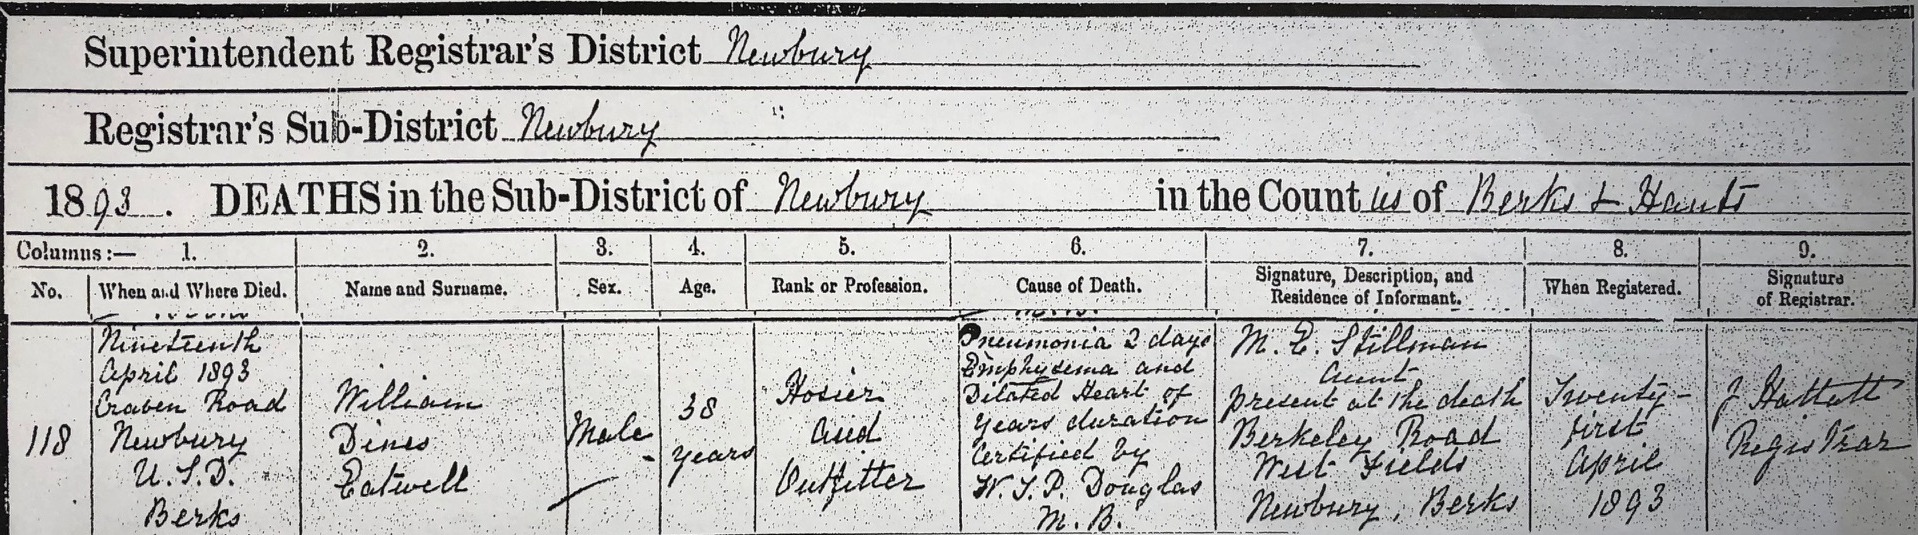 Superintendent Registrar's District Newbury
Registrar's Sub-District Newbury
1893. DEATHS in the Sub-District of Newbury in the Counties of Berks & Hants
Columns :— 1. 2. 3. 4. 5. 6. 7. 8. 9.
No. When and Where Died. Name and Surname. Sex. Age. Rank or Profession. Cause of Death. Signature, Description, and Residence of Informant. When Registered. Signature of Registrar.
118
Nineteenth
April 1893
Craven Road
Newbury
U.S.D.
Berks
William
Dines
Eatwell
Male
38
years
Hosier
and
Outfitter
Pneumonia 2 days
Emphysema and
Dilated Heart of
years duration
Certified by
W. S. P. Douglas
M.B.
M. E. Stillman
Aunt
present at the death
Berkeley Road
West Fields
Newbury, Berks
Twenty-
first
April
1893
J Hattatt
Registrar